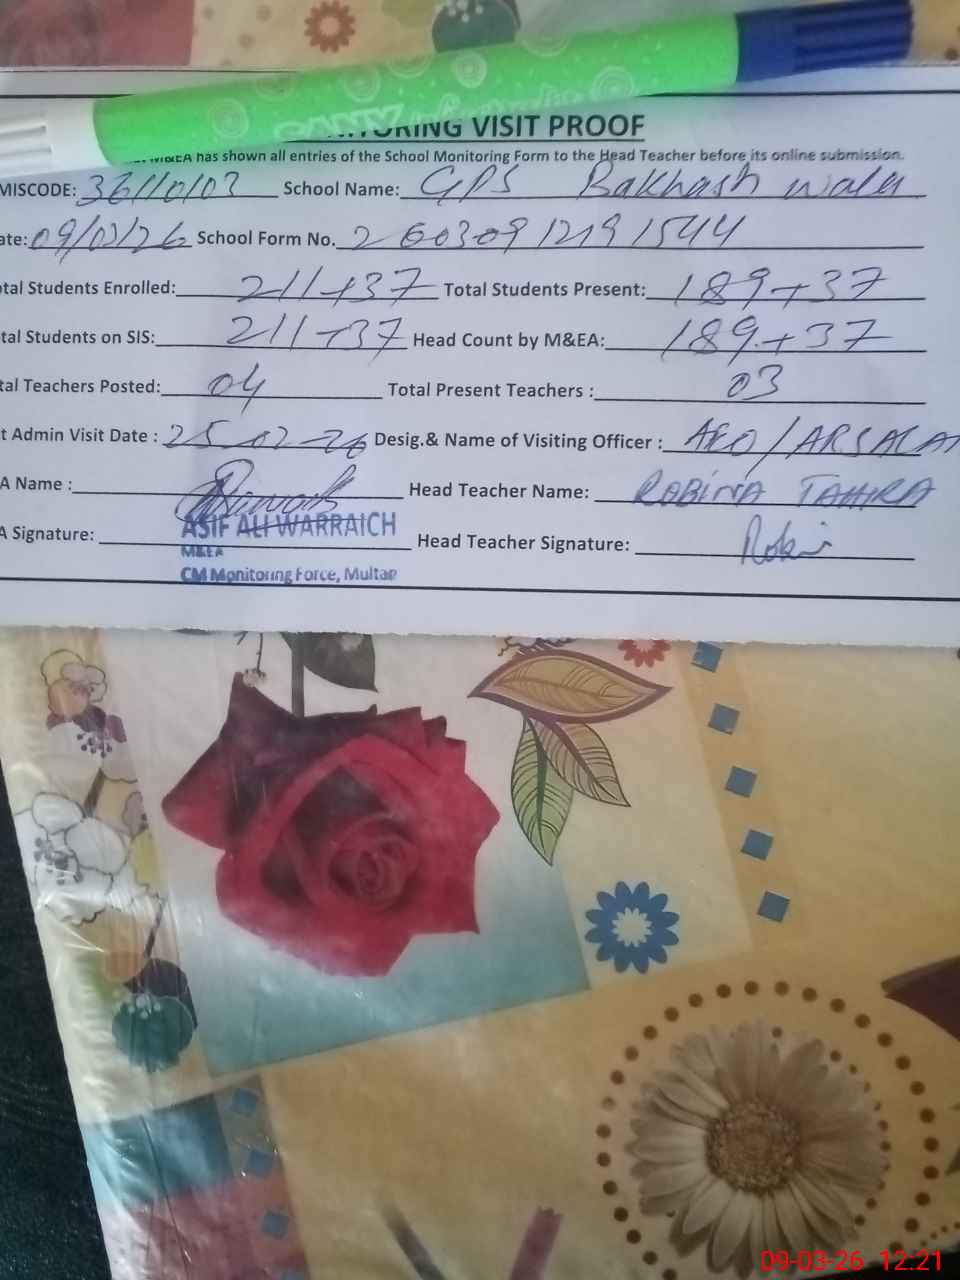 SANY
NITORING VISIT PROOF
M&EA has shown all entries of the School Monitoring Form to the Head Teacher before its online submission.
MISCODE: 36110103 School Name: GPS Bakhash wala
ate: 09/03/26 School Form No. 26030912191544
otal Students Enrolled: 211+37 Total Students Present: 189+37
tal Students on SIS: 211+37 Head Count by M&EA: 189+37
tal Teachers Posted: 04 Total Present Teachers : 03
t Admin Visit Date : 25-02-26 Desig.& Name of Visiting Officer : AEO/ARSALA
A Name : Head Teacher Name: ROBINA TAHIRA
ASIF ALI WARRAICH
A Signature: Head Teacher Signature: Robi
M&EA
CM Monitoring Force, Multan
09-03-26 12:21